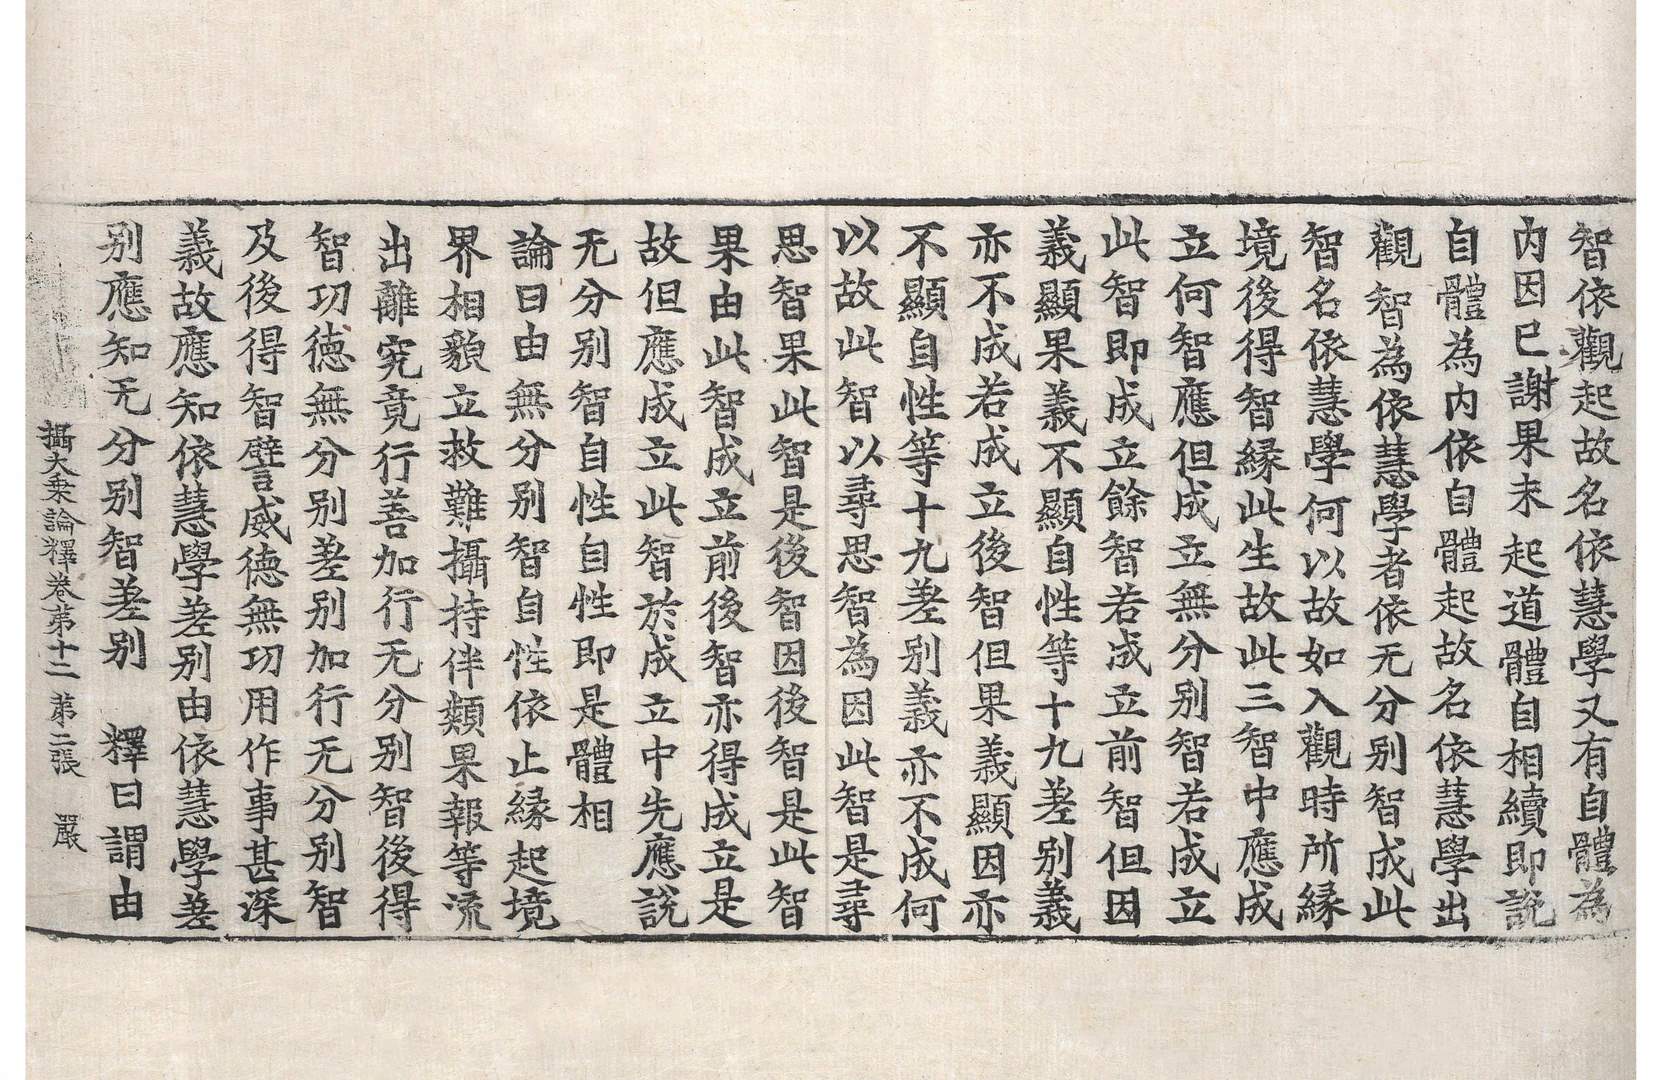 智依觀起故名依慧學又有自體為
内因已謝果未起道體自相續即說
自體為内依自體起故名依慧學出
觀智為依慧學者依无分别智成此
智名依慧學何以故如入觀時所縁
境後得智縁此生故此三智中應成
立何智應但成立無分别智若成立
此智即成立餘智若成立前智但因
義顯果義不顯自性等十九差别義
亦不成若成立後智但果義顯因亦
不顯自性等十九差别義亦不成何
以故此智以尋思智為因此智是尋
思智果此智是後智因後智是此智
果由此智成立前後智亦得成立是
故但應成立此智於成立中先應說
无分别智自性自性即是體相
論曰由無分别智自性依止縁起境
界相貌立救難攝持伴類果報等流
出離究竟行善加行无分别智後得
智功徳無分别差别加行无分别智
及後得智譬威徳無功用作事甚深
義故應知依慧學差别由依慧學差
别應知无分别智差别　釋曰謂由
攝大乗論釋卷第十二　第二張　嚴